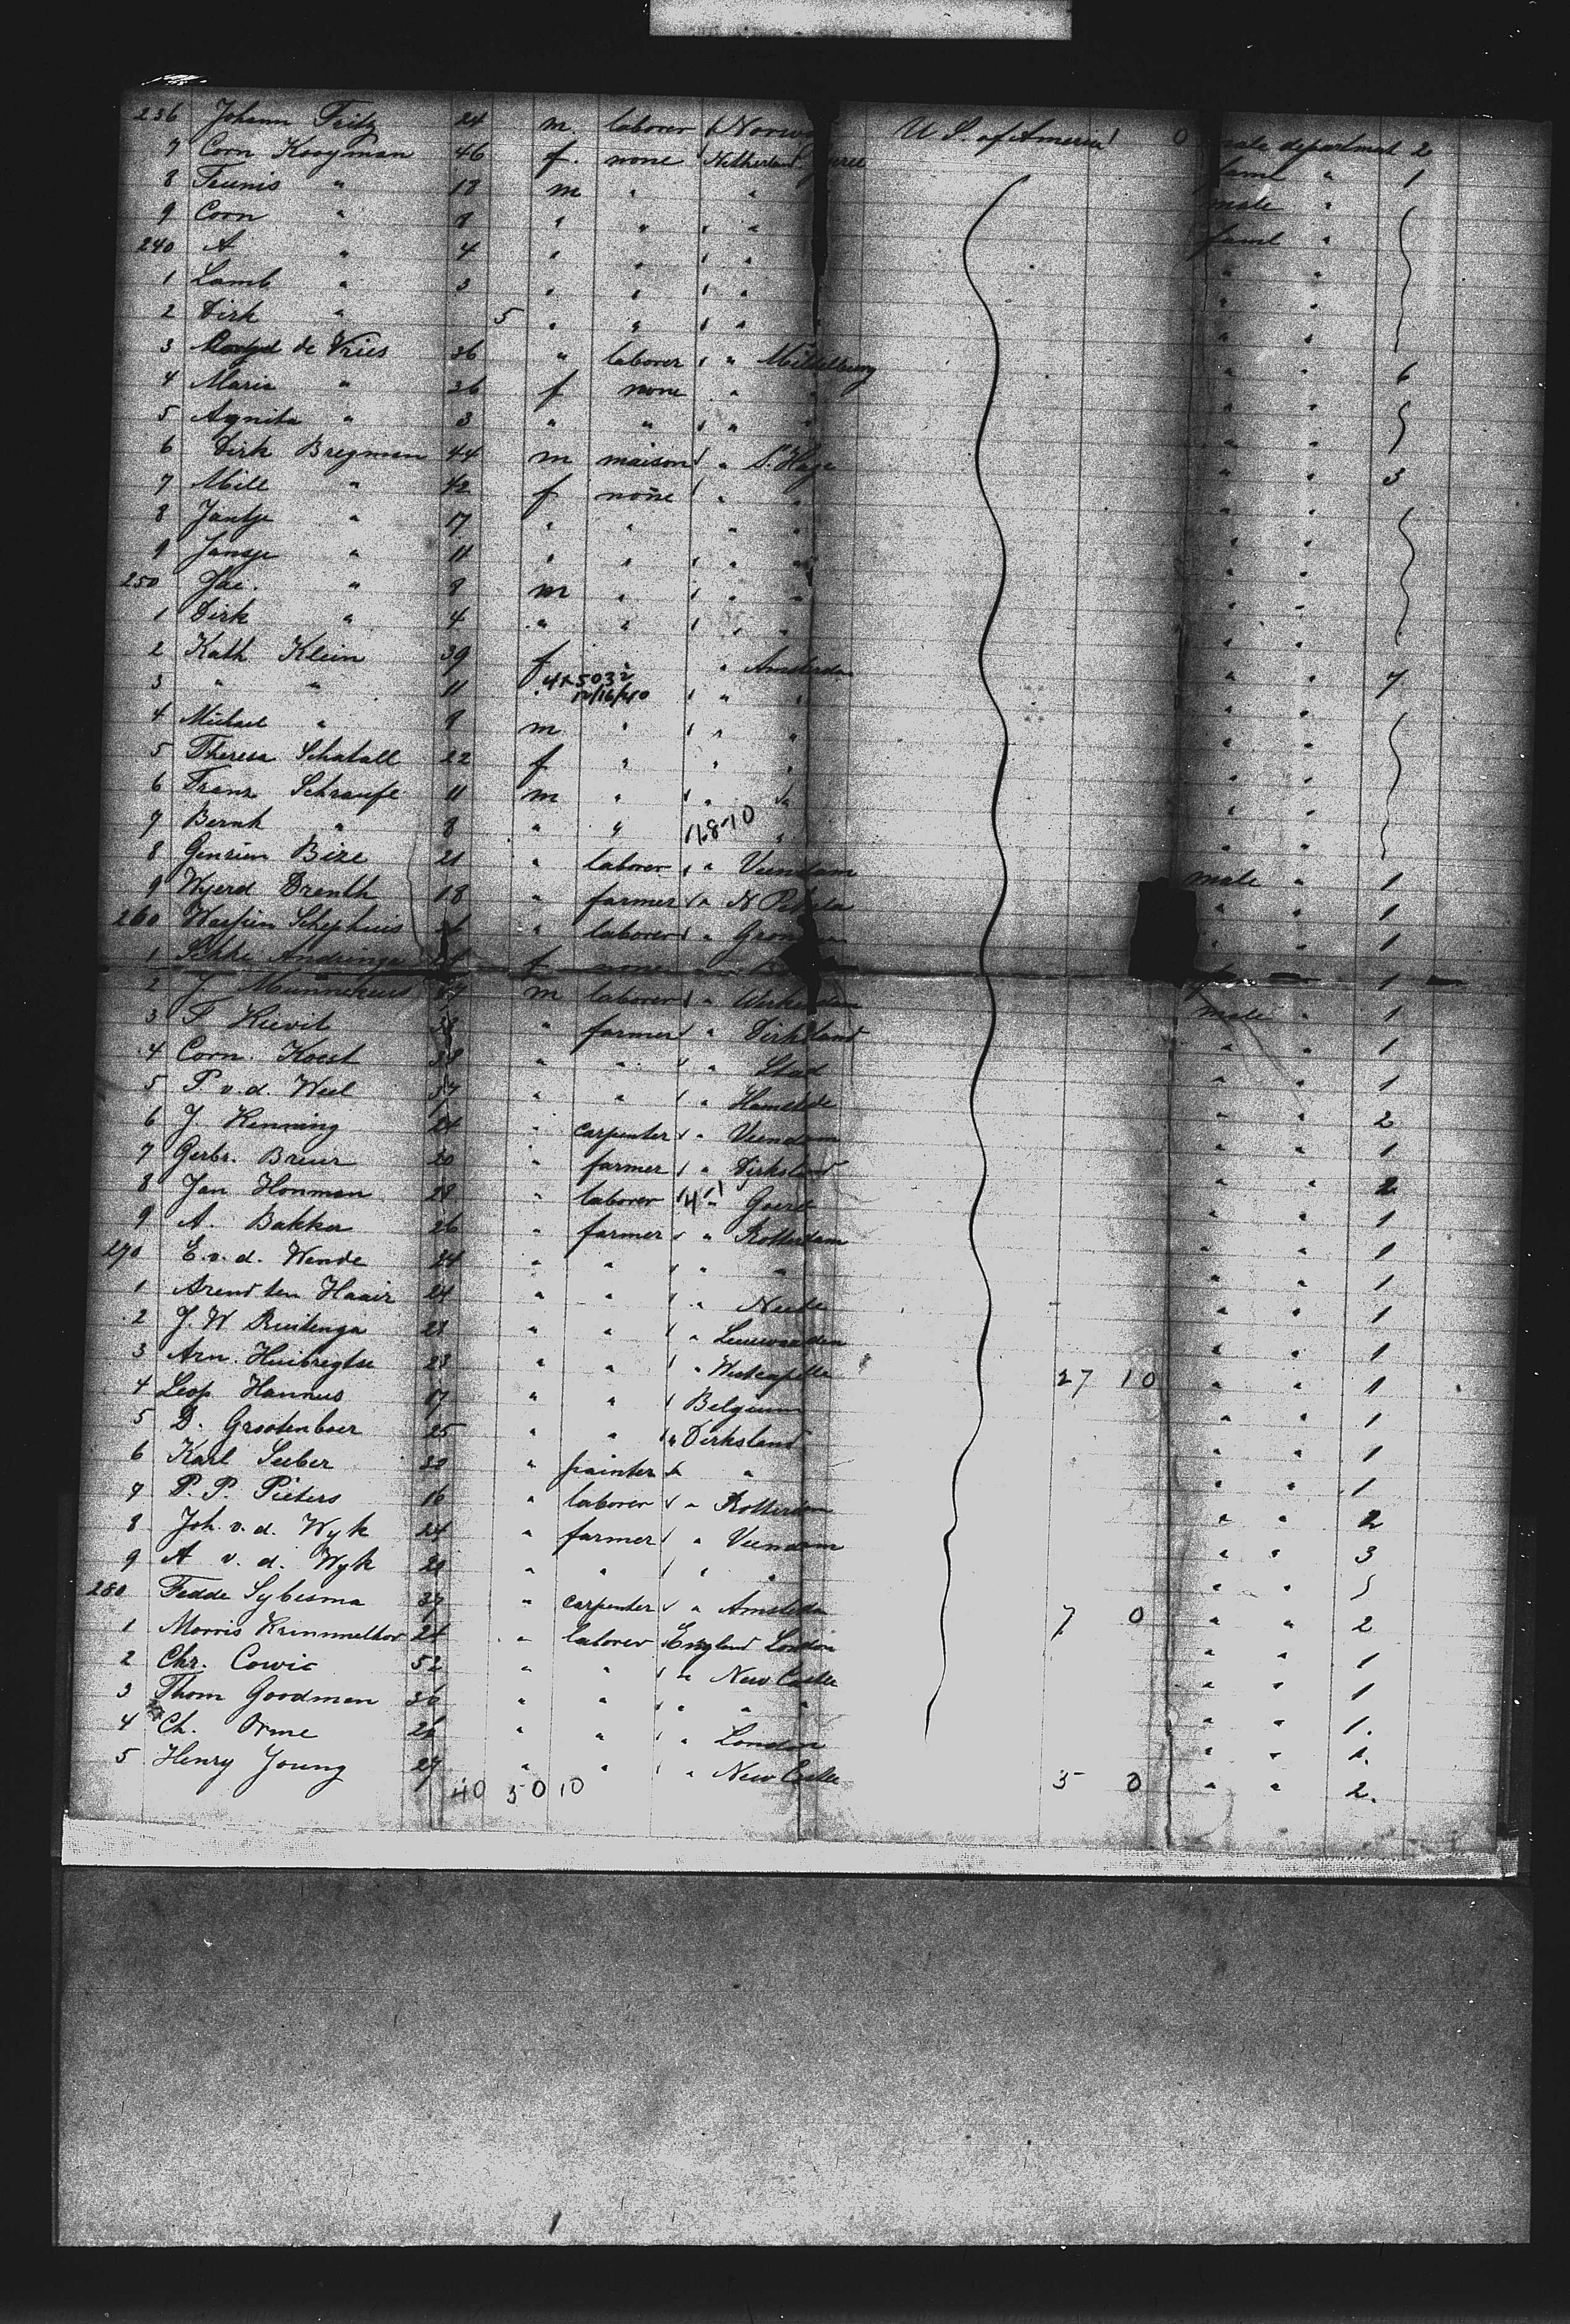 236 Johann Fritz 24 m. laborer Norw U S. of America 0 male department 2
7 Corn Kooyman 46 f. none Netherland faml " 1
8 Teunis " 18 m " " male "
9 Corn " 8 " " " " faml "
240 A " 4 " " " " " "
1 Lamb " 3 " " " " " "
2 Dirk " 5 " " " " " "
3 de Vries 36 " laborer " Middelburg " " 6
4 Maria " 36 f none " " " "
5 Agnita " 3 " " " " " "
6 Dirk Bregman 44 m maison " S. Hage " " 3
7 Mill " 42 f none " " " "
8 Jantje " 17 " " " " " "
9 Jansje " 11 " " " " " "
250 Jac. " 8 m " " " " "
1 Dirk " 4 " " " " " "
2 Kath Klein 39 f " Amsterda " " 7
3 " " 11 " 4x5032 12/16/40 " " " "
4 Michael " 9 m " " " " "
5 Theresa Schatall 22 f " " " " "
6 Franz Schraufe 11 m " " " " "
7 Bernh " 8 " " 11-8-10 " " "
8 Bize 21 " laborer " Veendam male " 1
9 Wyerd Drenth 18 " farmer " N Pekela " " 1
260 Schephuis 26 " laborer " Gron " " 1
1 Andringa f none " 1
2 J Munnekens m laborer " Werkendam male " 1
3 T Kievit 38 " farmer " Dirksland " " 1
4 Corn. Koest 38 " " " Stad " " 1
5 P v. d. Weel 57 " " " Hamstede " " 2
6 J. Henning 24 " carpenter " Veendam " " 1
7 Gerbr. Breur 20 " farmer " Dirksland " " 2
8 Jan Honman 28 " laborer " Goeree " " 1
9 A. Bakker 26 " farmer " Rotterdam " " 1
270 E. v. d. Wende 24 " " " " " " 1
1 Arend ten Haair 24 " " " Neede " " 1
2 J. W Ruitenga 28 " " " Leeuwarden " " 1
3 Arn. Huibregtse 23 " " " Westcapelle 27 10 " " 1
4 Leop Hannus 17 " " Belgium " " 1
5 D. Grootenboer 25 " " " Dirksland " " 1
6 Karl Seeber 30 " painter " " " " 1
7 P. P. Pieters 16 " laborer " Rotterdam " " 2
8 Joh. v. d. Wyk 24 " farmer " Veendam " " 3
9 A v. d. Wyk 20 " " " " " "
280 Fedde Sybesma 37 " carpenter " Amsterda 7 0 " " 2
1 Morris Krimmelhor 21 " laborer England London " " 1
2 Chr. Cowie 52 " " " New Castle " " 1
3 Thom Goodman 36 " " " " " " 1.
4 Ch. Orme 26 " " " London " " 1.
5 Henry Young 27 " " " New Castle 5 0 " " 2.
40 50 10